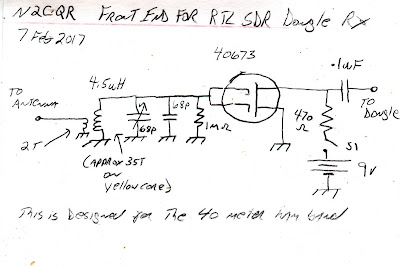 N2CQR FRONT END FOR RTL SDR Dongle RX
7 Feb 2017
40673
.1uF
4.5uH
TO
ANTENNA
TO
Dongle
68p
68p
1MΩ
470
Ω
S1
2T
(APPROX 35T
on
yellow core)
9v
This is Designed for The 40 meter ham band